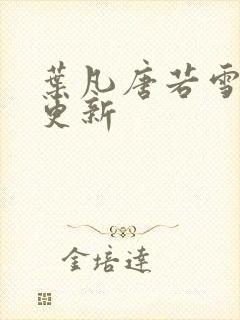 葉凡唐若雪
更新
金培達